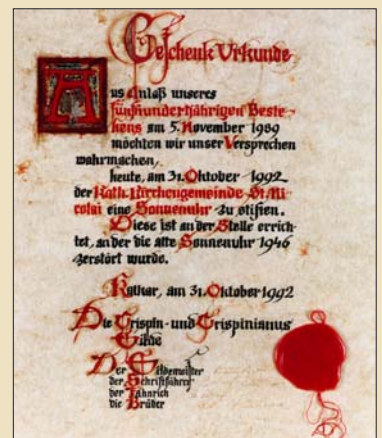 Geschenk Urkunde
Aus Anlaß unseres
fünfhundertjährigen Beste-
hens am 5. November 1989
möchten wir unser Versprechen
wahrmachen,
heute, am 31. Oktober 1992
der Kath. Kirchengemeinde St. Ni
colai eine Sonnenuhr zu stiften.
Diese ist an der Stelle errich-
tet, an der die alte Sonnenuhr 1946
zerstört wurde.
Kalkar, am 31. Oktober 1992
Die Crispin- und Crispinianus
Gilde
Der Gildemeister
der Schriftführer
der Fähnrich
die Brüder